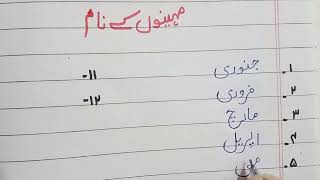 مہینوں کے نام
۱۔ جنوری ۱۱۔
۲۔ فروری ۱۲۔
۳۔ مارچ
۴۔ اپریل
۵۔ مئی